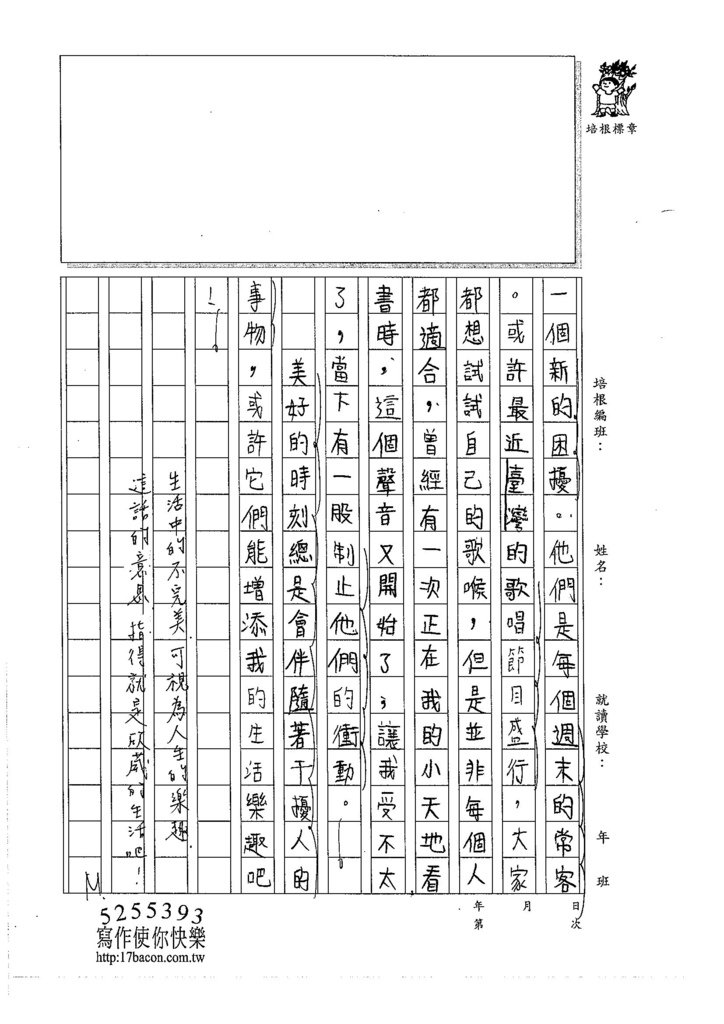 培根標章
培根編班：
姓名：
就讀學校：
年
班
年
月
日
第
次
一個新的困擾。他們是每個週末的常客
。或許最近臺灣的歌唱節目盛行，大家
都想試試自己的歌喉，但是並非每個人
都適合，曾經有一次正在我的小天地看
書時，這個聲音又開始了，讓我受不太
了，當下有一股制止他們的衝動。
美好的時刻總是會伴隨著干擾人的
事物，或許它們能增添我的生活樂趣吧
！
生活中的不完美可視為人生的樂趣.
這話的意思指得就是你葳的生活吧！
M.
5255393
寫作使你快樂
http:17bacon.com.tw